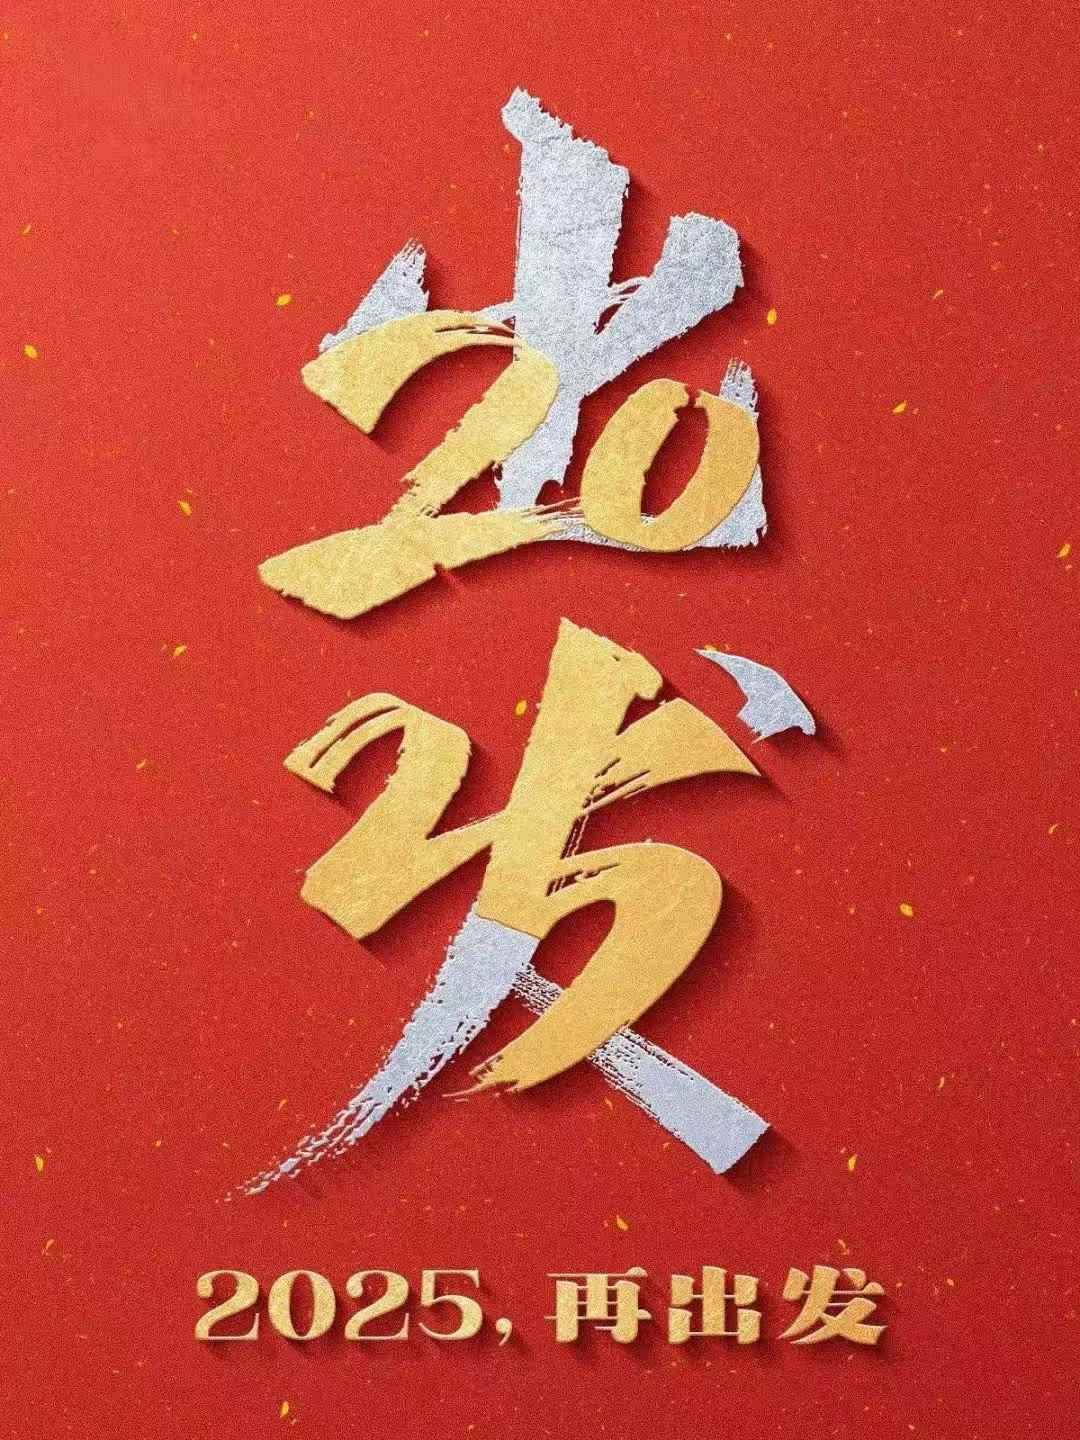 出
20
发
25
2025,再出发